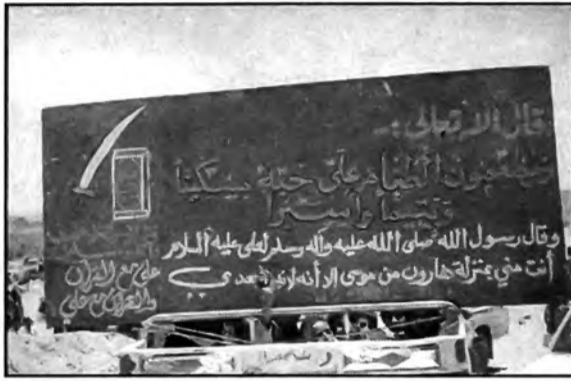 قال الله تعالى :-
ويطعمون الطعام على حبه مسكينا
ويتيما وأسيرا
وقال رسول الله صلى الله عليه وآله وسلم لعلي عليه السلام
أنت مني بمنزلة هارون من موسى إلا أنه لا نبي بعدي
علي مع القرآن
والقرآن مع علي